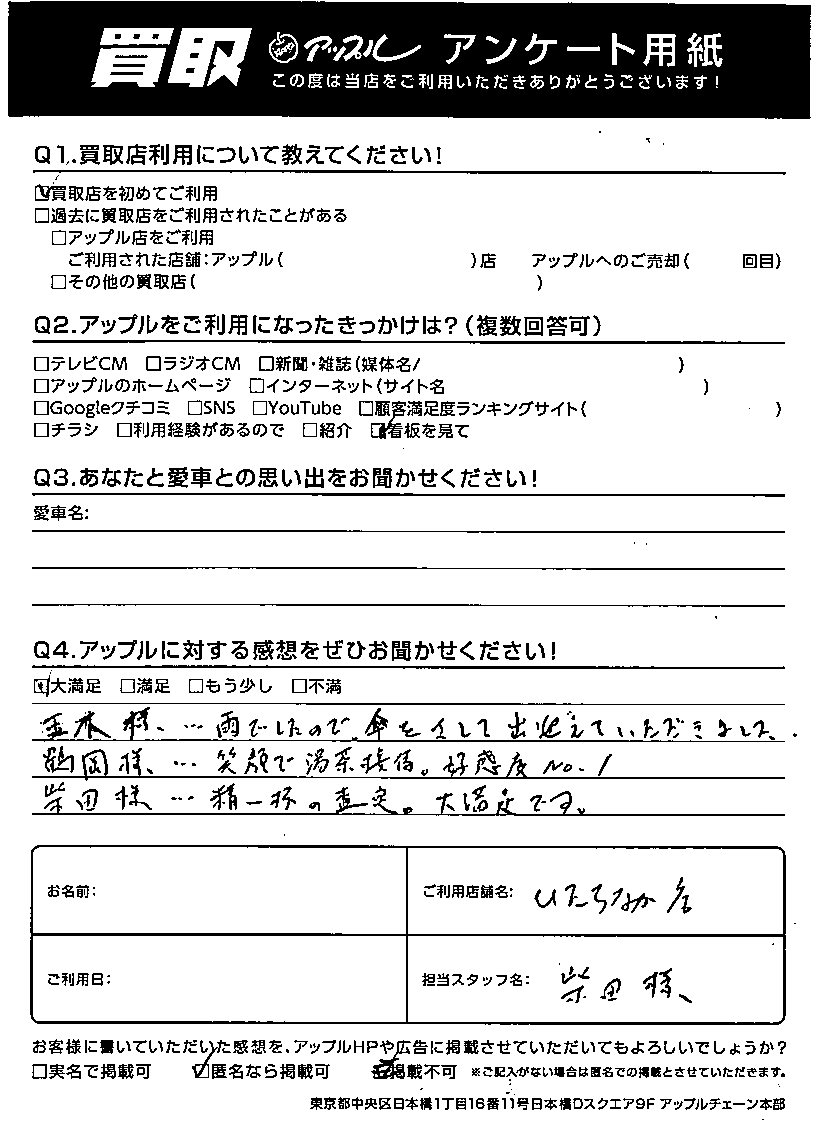 買取 アップル アンケート用紙
この度は当店をご利用いただきありがとうございます!
Q1.買取店利用について教えてください!
☑買取店を初めてご利用
□過去に買取店をご利用されたことがある
□アップル店をご利用
ご利用された店舗:アップル( )店 アップルへのご売却( 回目)
□その他の買取店( )
Q2.アップルをご利用になったきっかけは?(複数回答可)
□テレビCM □ラジオCM □新聞・雑誌(媒体名/ )
□アップルのホームページ □インターネット(サイト名 )
□Googleクチコミ □SNS □YouTube □顧客満足度ランキングサイト( )
□チラシ □利用経験があるので □紹介 ☑看板を見て
Q3.あなたと愛車との思い出をお聞かせください!
愛車名:
Q4.アップルに対する感想をぜひお聞かせください!
☑大満足 □満足 □もう少し □不満
様、…雨でしたので、傘をさして出迎えていただきました。
鶴岡様、…笑顔で湯茶接待。好感度No.1
柴田様…精一杯の査定。大満足です。
お名前:
ご利用店舗名: ひたちなか店
ご利用日:
担当スタッフ名: 柴田様、
お客様に書いていただいた感想を、アップルHPや広告に掲載させていただいてもよろしいでしょうか?
□実名で掲載可 ☑匿名なら掲載可 掲載不可 ※ご記入がない場合は匿名での掲載とさせていただきます。
東京都中央区日本橋1丁目16番11号日本橋Dスクエア9F アップルチェーン本部